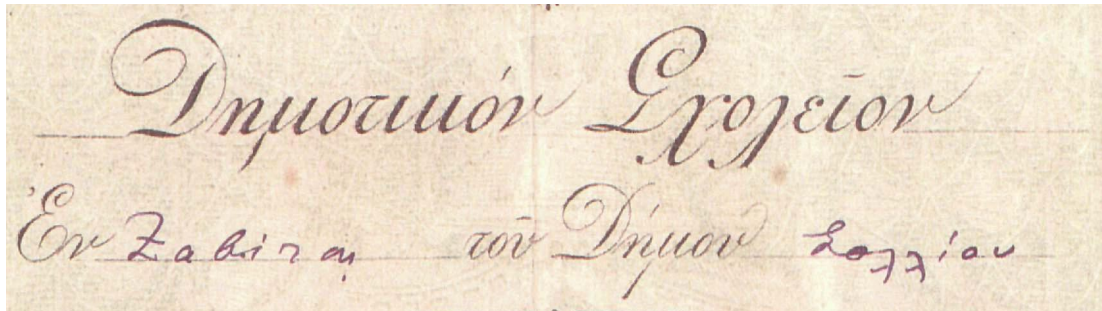 Δημοτικόν Σχολεῖον
Ἐν Ζαβίτσῃ τοῦ Δήμου Σολλίου